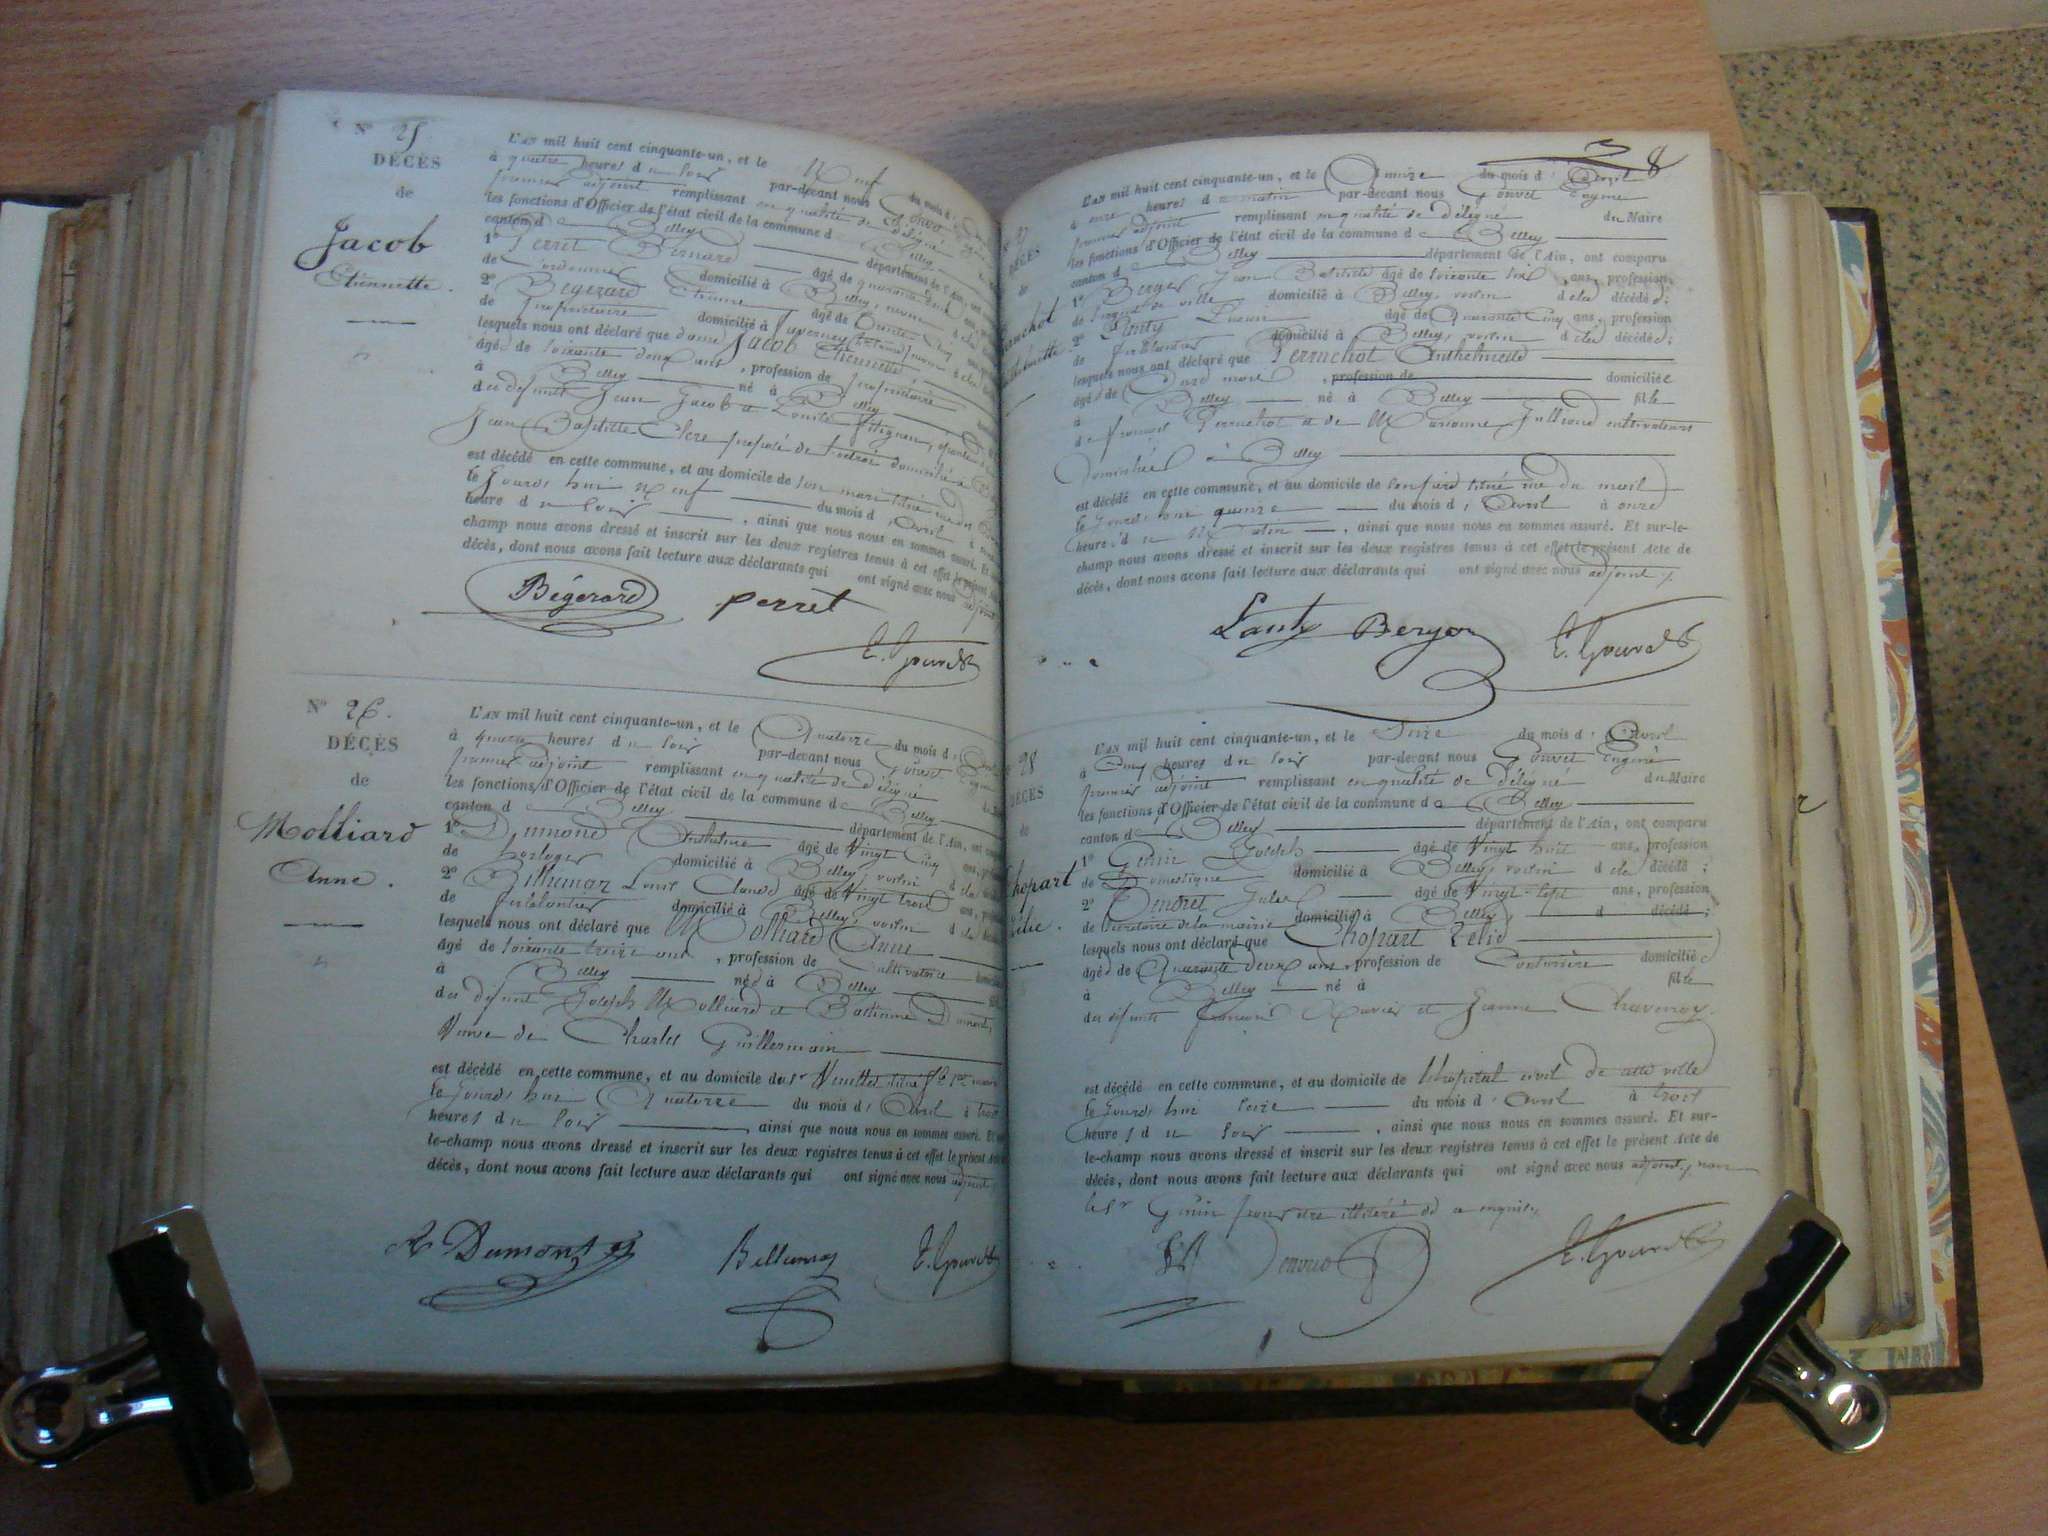 N° 25
DÉCÈS
de
Jacob
Etiennette.
L'AN mil huit cent cinquante-un, et le Neuf du mois d'
à quatre heures du soir par-devant nous Gouvet
premier adjoint remplissant en qualité de Délégué
les fonctions d'Officier de l'état civil de la commune de Belley
canton de Belley département de l'Ain, ont
1° Perret Bernard âgé de quarante
de Cordonnier domicilié à Belley, voisin
2° Bégérard Etienne âgé de trente cinq
de propriétaire domicilié à
lesquels nous ont déclaré que dame Jacob Etiennette
âgé de soixante douze ans, profession de propriétaire
à Belley né à Belley
des défunts Jean Jacob et Louise épouse
Jean Baptiste Clerc préposé de l'octroi domicilié à
est décédé en cette commune, et au domicile de son mari situé rue
le jourd'hui Neuf du mois d'Avril à
heure du soir, ainsi que nous nous en sommes assuré. Et
champ nous avons dressé et inscrit sur les deux registres tenus à cet effet le présent
décès, dont nous avons fait lecture aux déclarants qui ont signé avec nous adjoint
Bégérard perret
E. Gouvet
N° 26.
DÉCÈS
de
Molliard
Anne.
L'AN mil huit cent cinquante-un, et le Quatorze du mois d'
à quatre heures du soir par-devant nous Gouvet
premier adjoint remplissant en qualité de délégué
les fonctions d'Officier de l'état civil de la commune de Belley
canton de Belley département de l'Ain, ont
1° Dumond Anthelme âgé de Vingt Cinq ans,
de horloger domicilié à Belley, voisin d
2° Billiemaz Louis Claude âgé de Vingt trois ans,
de ferblantier domicilié à Belley, voisin d
lesquels nous ont déclaré que Molliard Anne
âgé de soixante treize ans, profession de Cultivatrice
à Belley né à Belley
des défunts Joseph Molliard et Bastienne Dumont,
Veuve de Charles Guillermain
est décédé en cette commune, et au domicile du Sr situé
le jourd'hui Quatorze du mois d'Avril à trois
heures du soir, ainsi que nous nous en sommes assuré. Et
le-champ nous avons dressé et inscrit sur les deux registres tenus à cet effet le présent Acte
décès, dont nous avons fait lecture aux déclarants qui ont signé avec nous adjoint
Dumont Billiemaz E. Gouvet
8
27
DÉCÈS
de
Perruchot
Anthelmette
L'AN mil huit cent cinquante-un, et le Quinze du mois d'Avril
à onze heures du matin par-devant nous Gouvet Eugène
premier adjoint remplissant en qualité de Délégué du Maire
les fonctions d'Officier de l'état civil de la commune de Belley
canton de Belley département de l'Ain, ont comparu
1° Berger Jean Baptiste âgé de soixante six ans, profession
de sergent de ville domicilié à Belley, voisin de la décédée;
2° Lanty âgé de Quarante Cinq ans, profession
de ferblantier domicilié à Belley, voisin de la décédée;
lesquels nous ont déclaré que Perruchot Anthelmette
âgée de Onze mois, profession de domiciliée
à Belley né à Belley fille
de François Perruchot et de Marianne Julliand cultivateurs
domiciliés à Belley
est décédé en cette commune, et au domicile de son père situé rue du mail
le jourd'hui quinze du mois d'Avril à onze
heures du Matin, ainsi que nous nous en sommes assuré. Et sur-le-
champ nous avons dressé et inscrit sur les deux registres tenus à cet effet le présent Acte de
décès, dont nous avons fait lecture aux déclarants qui ont signé avec nous adjoint.
Lanty Berger E. Gouvet
28
DÉCÈS
de
Chopart
Zélie.
L'AN mil huit cent cinquante-un, et le Seize du mois d'Avril
à Cinq heures du soir par-devant nous Gouvet Eugène
premier adjoint remplissant en qualité de Délégué du Maire
les fonctions d'Officier de l'état civil de la commune de Belley
canton de Belley département de l'Ain, ont comparu
1° Génin Joseph âgé de Vingt huit ans, profession
de Domestique domicilié à Belley, voisin de la décédé;
2° Jules âgé de Vingt-sept ans, profession
de Secrétaire de la mairie domicilié à Belley, d décédé;
lesquels nous ont déclaré que Chopart Zélie
âgé de Quarante deux ans, profession de Couturière domiciliée
à Belley né à fille
des défunts François Xavier et Jeanne Chavanoz.
est décédé en cette commune, et au domicile de l'hôpital civil de cette ville
le jourd'hui seize du mois d'Avril à trois
heures du soir, ainsi que nous nous en sommes assuré. Et sur-
le-champ nous avons dressé et inscrit sur les deux registres tenus à cet effet le présent Acte de
décès, dont nous avons fait lecture aux déclarants qui ont signé avec nous adjoint, non
le Sr Génin pour être illétéré de ce enquis.
E. Gouvet